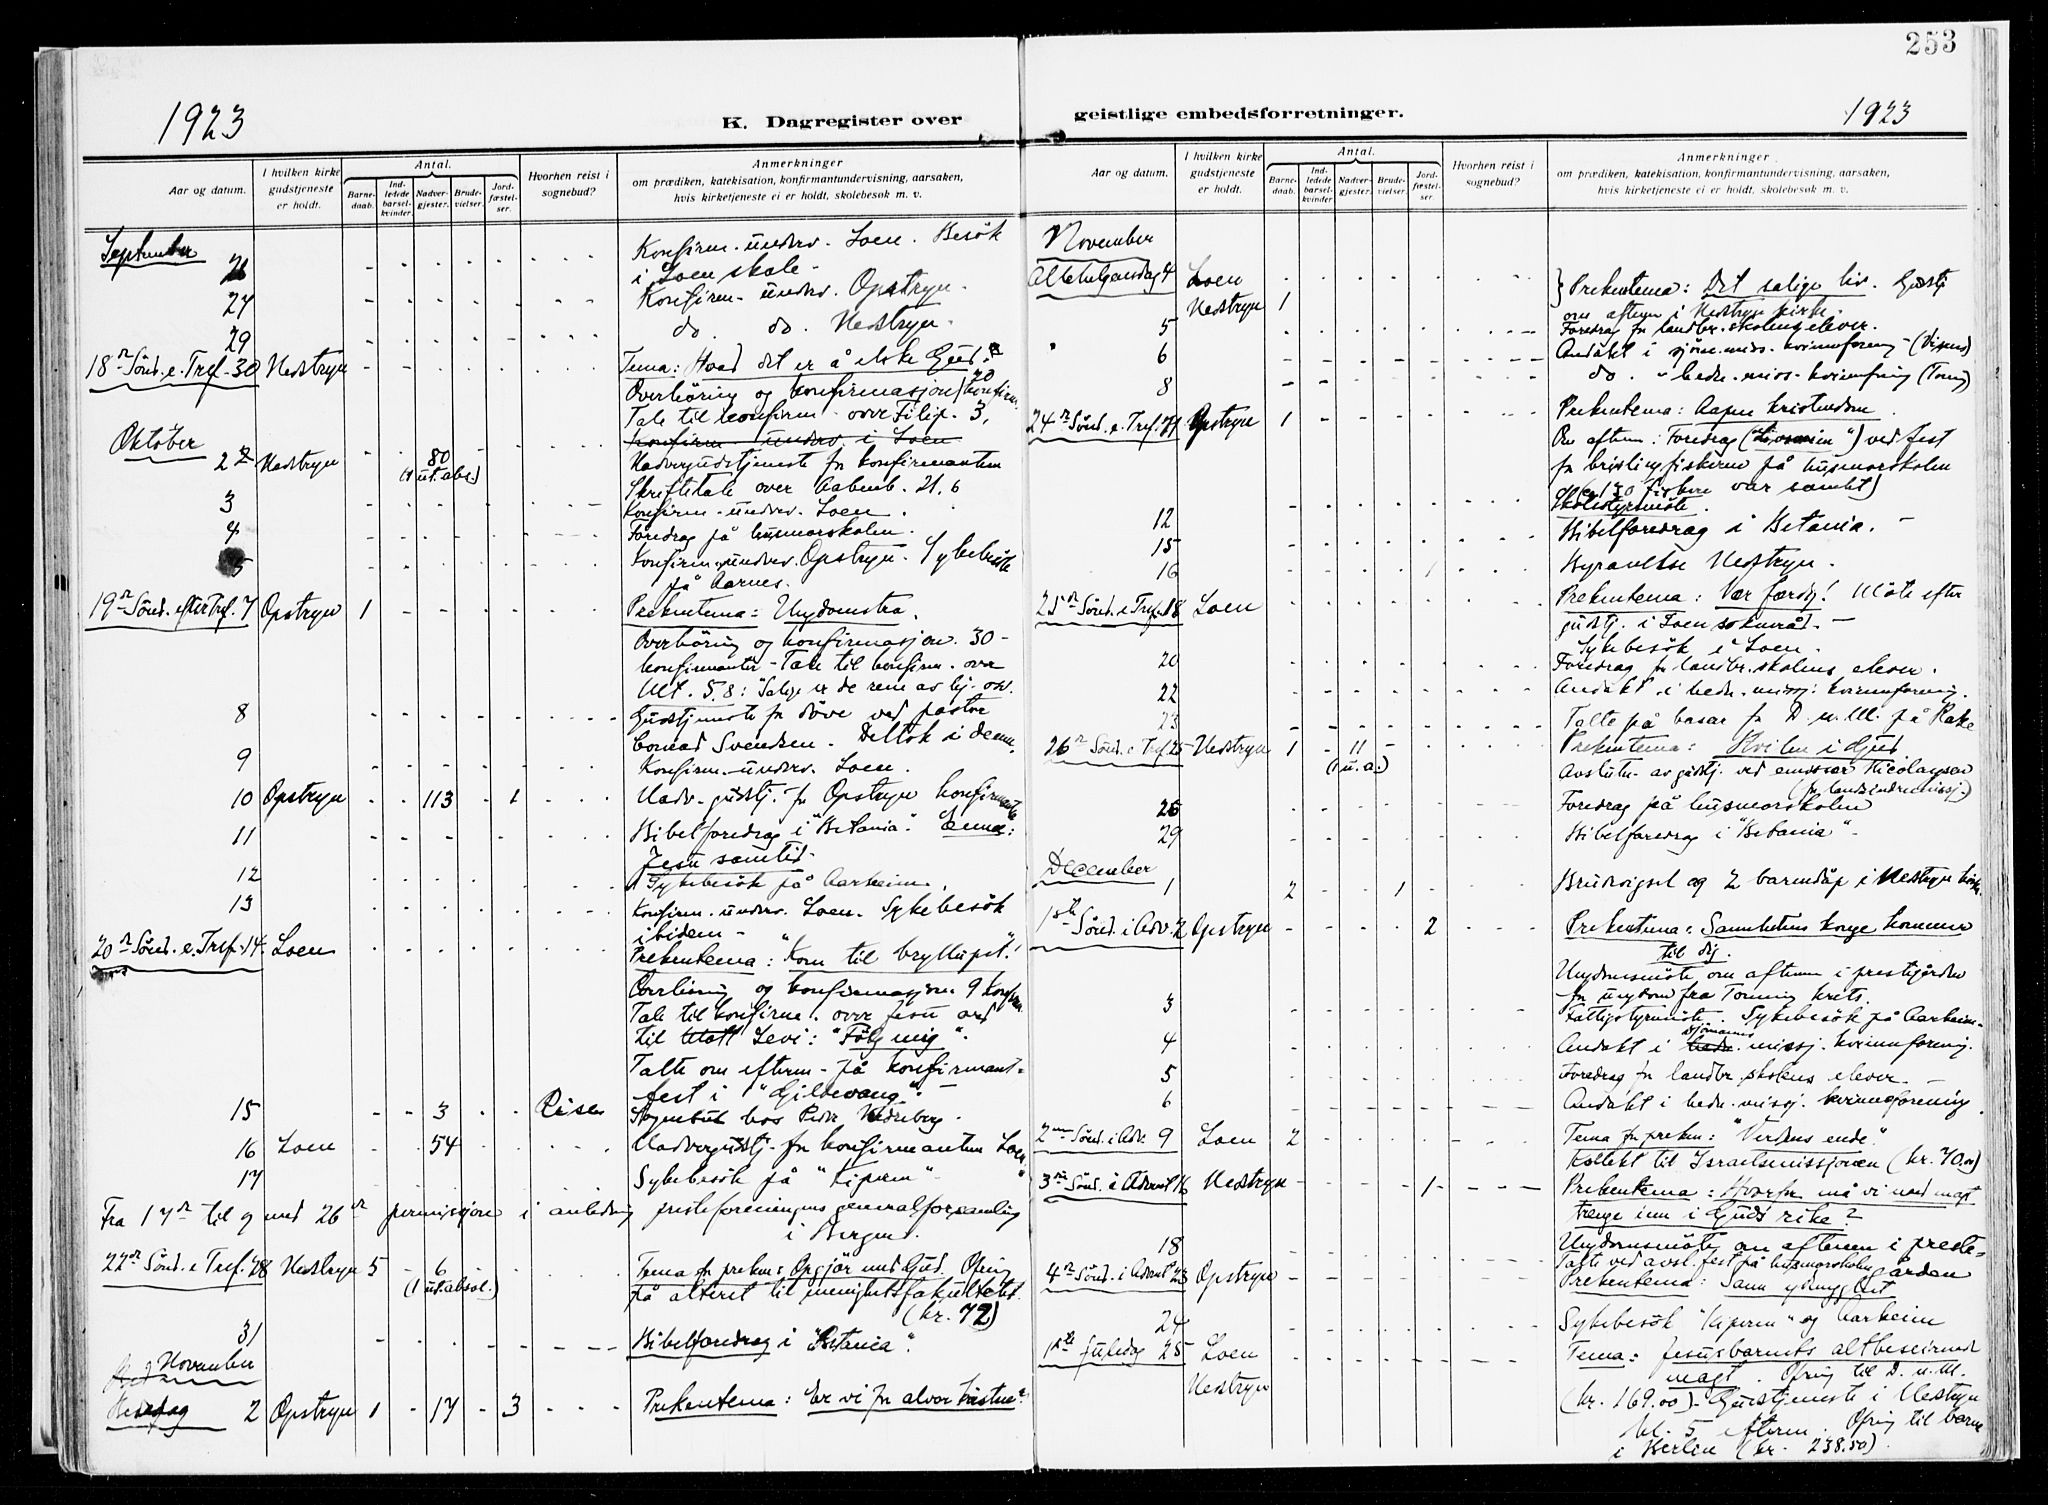 253
1923
K. Dagregister over
geistlige embedsforretninger.
1923
Aar og datum.
I hvilken kirke gudstjeneste er holdt.
Antal.
Barne-daab.
Ind-ledede barsel-kvinder.
Nadver-gjester.
Brude-vielser.
Jord-fæstel-ser.
Hvorhen reist i sognebud?
Anmerkninger
om prædiken, katekisation, konfirmantundervisning, aarsaken,
hvis kirketjeneste ei er holdt, skolebesøk m. v.
September
26 Konfirm. underv. Loen. Besök
i Loen skole.
27 Konfirm. underv. Opstryn.
29 do. do. Nedstryn.
18de Sönd. e. Tref. 30 Nedstryn Tema: Hvad det er å elske Gud.
Overhöring og konfirmasjon
Tale til konfirm. over Filip. 3,
Oktober
konfirm. underv. i Loen
2 Nedstryn 80 Nadvergudstjeneste for konfirmanten
(1 ut. abs.) Skriftetale over Aabenb. 21. 6
3 Konfirm. underv. Loen.
4 Foredrag på husmorskolen.
5 Konfirm. underv. Opstryn. Sykebesök
på Aarnes.
19de Sönd. efter Tref. 7 Opstryn 1 Prekentema: Ungdomstro.
Overhöring og konfirmasjon. 30
konfirmanter - Tale til konfirm. over
Mt. 5.8: "Salige er de rene av hj. osv.
8 Gudstjeneste for döve ved pastor
Conrad Svendsen. Deltok i denne.
9 Konfirm. underv. Loen.
10 Opstryn 113 1 Nadv. gudstj. for Opstryn konfirmanter
11 Bibelforedrag i "Betania". Emne:
Jesu samtid.
12 Sykebesök på Aarheim.
13 Konfirm. underv. Loen. Sykebesök
ibidem
20de Sönd. e. Tref. 14. Loen Prekentema: "Kom til bryllupet!"
Overhöring og konfirmasjon 9 konfirm.
Tale til konfirm. over Jesu ord
til Levi: "Fölg mig".
Talte om efterm. på konfirmant-
fest i "Gildevang".
15 3 Reisen Sognebud hos Peder
16 Loen 54 Nadvergudstj. for konfirmanten Loen
17 Sykebesök på "Kiperen"
Fra 17de til og med 26de permisjon i anledning presteforeningens generalforsamling
i Bergen.
22de Sönd. e Tref. 28 Nedstryn 5 6 Tema for preken: Opgjör med Gud. Ofring
(1 ut. absol.) på alteret til menighetsfakultetet.
(kr. 72)
31 Bibelforedrag i "Betania".
November
2 Opstryn 1 17 3 Prekentema: Er vi for alvor kristne?
Aar og datum.
I hvilken kirke gudstjeneste er holdt.
Antal.
Barne-daab.
Ind-ledede barsel-kvinder.
Nadver-gjester.
Brude-vielser.
Jord-fæstel-ser.
Hvorhen reist i sognebud?
Anmerkninger
om prædiken, katekisation, konfirmantundervisning, aarsaken,
hvis kirketjeneste ei er holdt, skolebesøk m. v.
November
Allehelgensdag 4 Loen Prekentema: Det salige liv. Gudstj
Nedstryn 1 om aftenen i Nedstryn kirke.
5 Foredrag for landbr. skolens elever.
6 Andakt i sjöm. miss. kvinneforening
8 do. " hedn. miss. kvinnefoning
24de Sönd. e. Tref. 11 Opstryn 1 Prekentema: Aapen kristendom.
Om aftenen: Foredrag ved fest
for brislingfiskerne på husmorskolen
(ca 130 fiskere var samlet)
12 Skolestyremöte.
15 Bibelforedrag i Betania.
16 1 Byravelse Nedstryn.
25de Sönd. e Tref. 18 Loen Prekentema: Vær færdig! Möte efter
gudstj. i Loen sokneråd.
Sykebesök i Loen.
20 Foredrag for landbr. skolens elever.
22 Andakt i hedn. missj. kvinneforening.
23 Talte på basar for D. n. M. på Rake
26de Sönd. e Tref. 25 Nedstryn 1 11 Prekentema: Hvilen i Gud
(1 u. a.) Avslutn. av gudstj. ved emissær Nicolaysen
(for landsindremissj.)
26 Foredrag på husmorskolen
29 Bibelforedrag i "Betania"
December
1 2 1 Brudevigsel og 2 barnedåp i Nedstryn kirke
1ste Sönd. i Adv. 2 Opstryn 2 Prekentema: Sannhetens konge kommer
til dig.
Ungdomsmöte om aftenen i prestegården
for ungdom fra Tonning krets.
3 Fattigstyremöte. Sykebesök på Aarheim.
4 Andakt i hedn. sjömanns missj. kvinneforening.
5 Foredrag for landbr. skolens elever.
6 Andakt i hedn. missj. kvinneforening.
2nen Sönd. i Adv. 9 Loen 2 Tema for preken: "Verdens ende".
Kollekt til Israelsmissjonen (kr. 70.00)
3dje Sönd. i Advent 16 Nedstryn 1 Prekentema: Hvorfor må vi med magt
trenge inn i Guds rike?
18 Ungdomsmöte om aftenen i preste-
gården
Talte ved avsl. fest på husmorskolen
4de Sönd. i Advent 23 Opstryn Prekentema: Sann ydmyghet
24 Sykebesök "Kiperen" og Aarheim
1ste Juledag 25 Loen Tema: Jesusbarnets altbeseirende
magt. Ofring til D. n. M.
Nedstryn (kr. 169.00) - Gudstjeneste i Nedstryn
kl. 5 efterm. Ofring til barne
i Berlin (kr. 238.50).